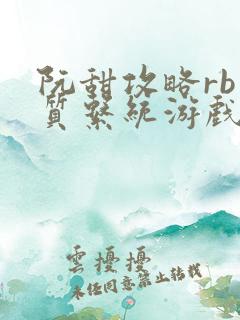 阮甜攻略rb
質繫統游戲
雲擾擾
未经同意禁止转载